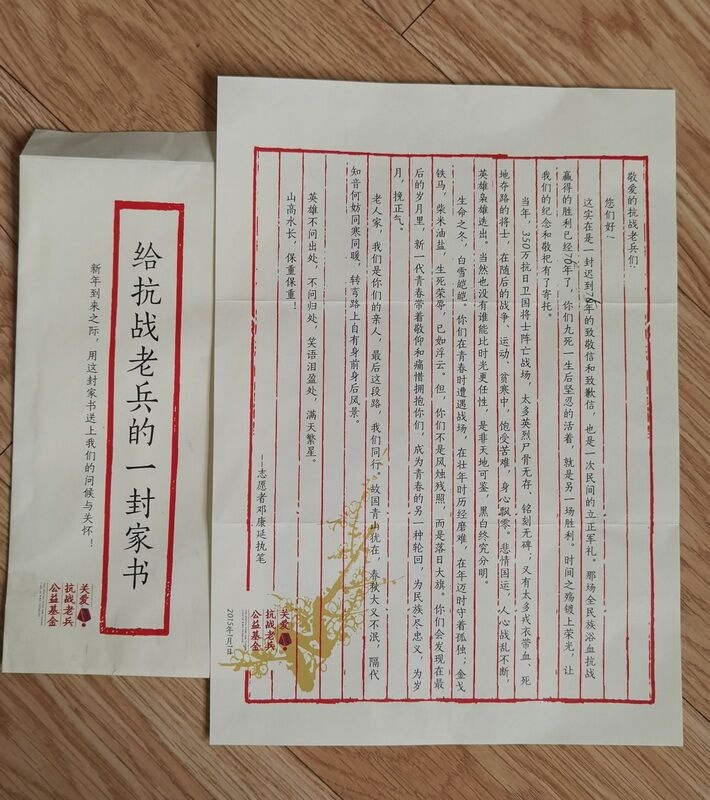 给抗战老兵的一封家书
新年到来之际，用这封家书送上我们的问候与关怀！
关爱
抗战老兵
公益基金
敬爱的抗战老兵们：
您们好！
这实在是一封迟到70年的致敬信和致歉信，也是一次民间的立正军礼。那场全民族浴血抗战
赢得的胜利已经70年了，你们九死一生后坚忍的活着，就是另一场胜利。时间之殇镀上荣光，让
我们的纪念和敬祀有了寄托。
当年，350万抗日卫国将士阵亡战场，太多英烈尸骨无存、铭刻无碑；又有太多戎衣带血、死
地夺路的将士，在随后的战争、运动、贫寒中，饱受苦难，身心飘零。悲情国运，人心战乱不断，
英雄枭雄迭出。当然也没有谁能比时光更任性，是非天地可鉴，黑白终究分明。
生命之冬，白雪皑皑。你们在青春时遭遇战场，在壮年时历经磨难，在年迈时守着孤独；金戈
铁马，柴米油盐，生死荣辱，已如浮云。但，你们不是风烛残照，而是落日大旗。你们会发现在最
后的岁月里，新一代青春带着敬仰和痛惜拥抱你们，成为青春的另一种轮回，为民族尽忠义，为岁
月，挽正气。
老人家，我们是你们的亲人，最后这段路，我们同行。故国青山犹在，春秋大义不泯，隔代
知音何妨同寒同暖，转弯路上自有身前身后风景。
英雄不问出处，不问归处，笑语泪盈处，满天繁星。
山高水长，保重保重！
—志愿者邓康延执笔
2015年1月1日
关爱
抗战老兵
公益基金